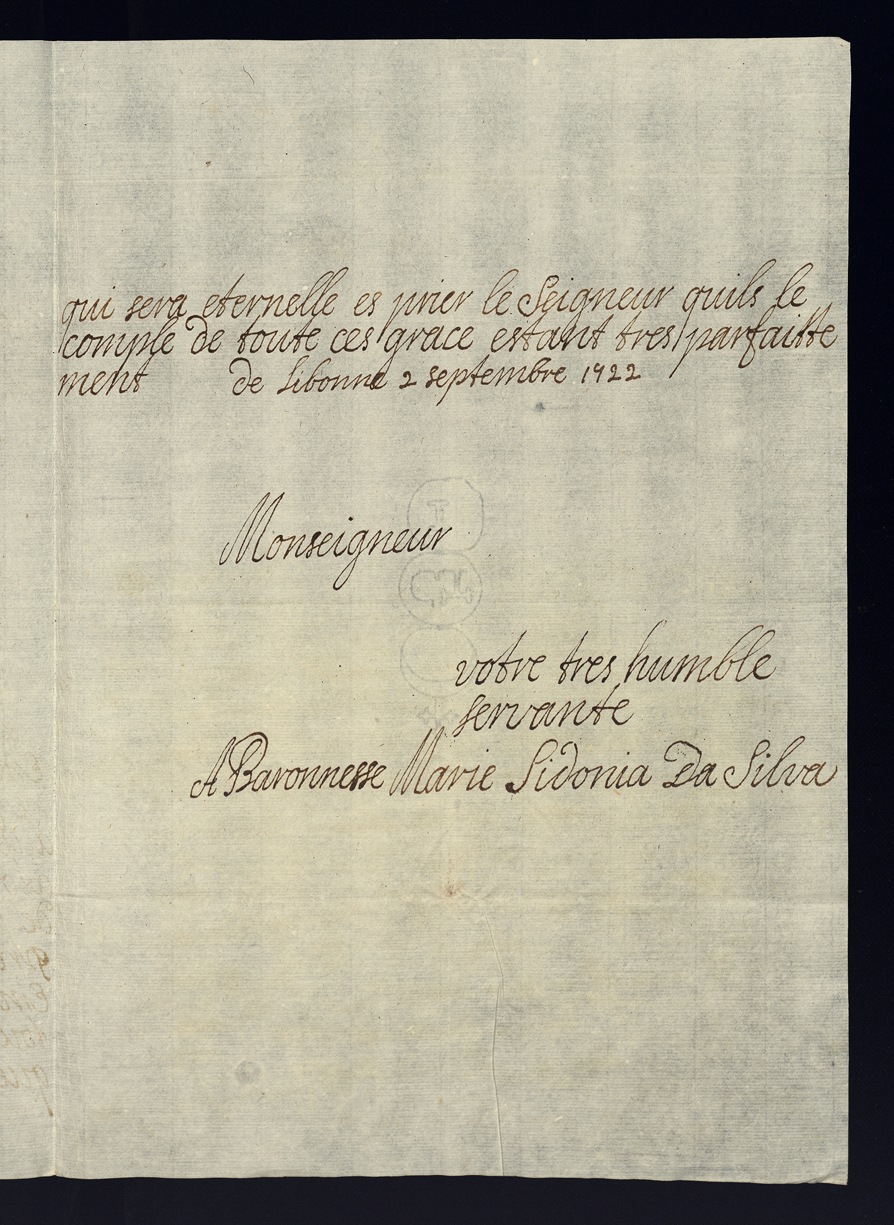 qui sera eternelle es prier le Seigneur quils le
comple de toute ces grace estant tres parfaitte
ment de Lisbonne 2 septembre 1722
Monseigneur
votre tres humble
servante
A Baronnesse Marie Sidonia Da Silva